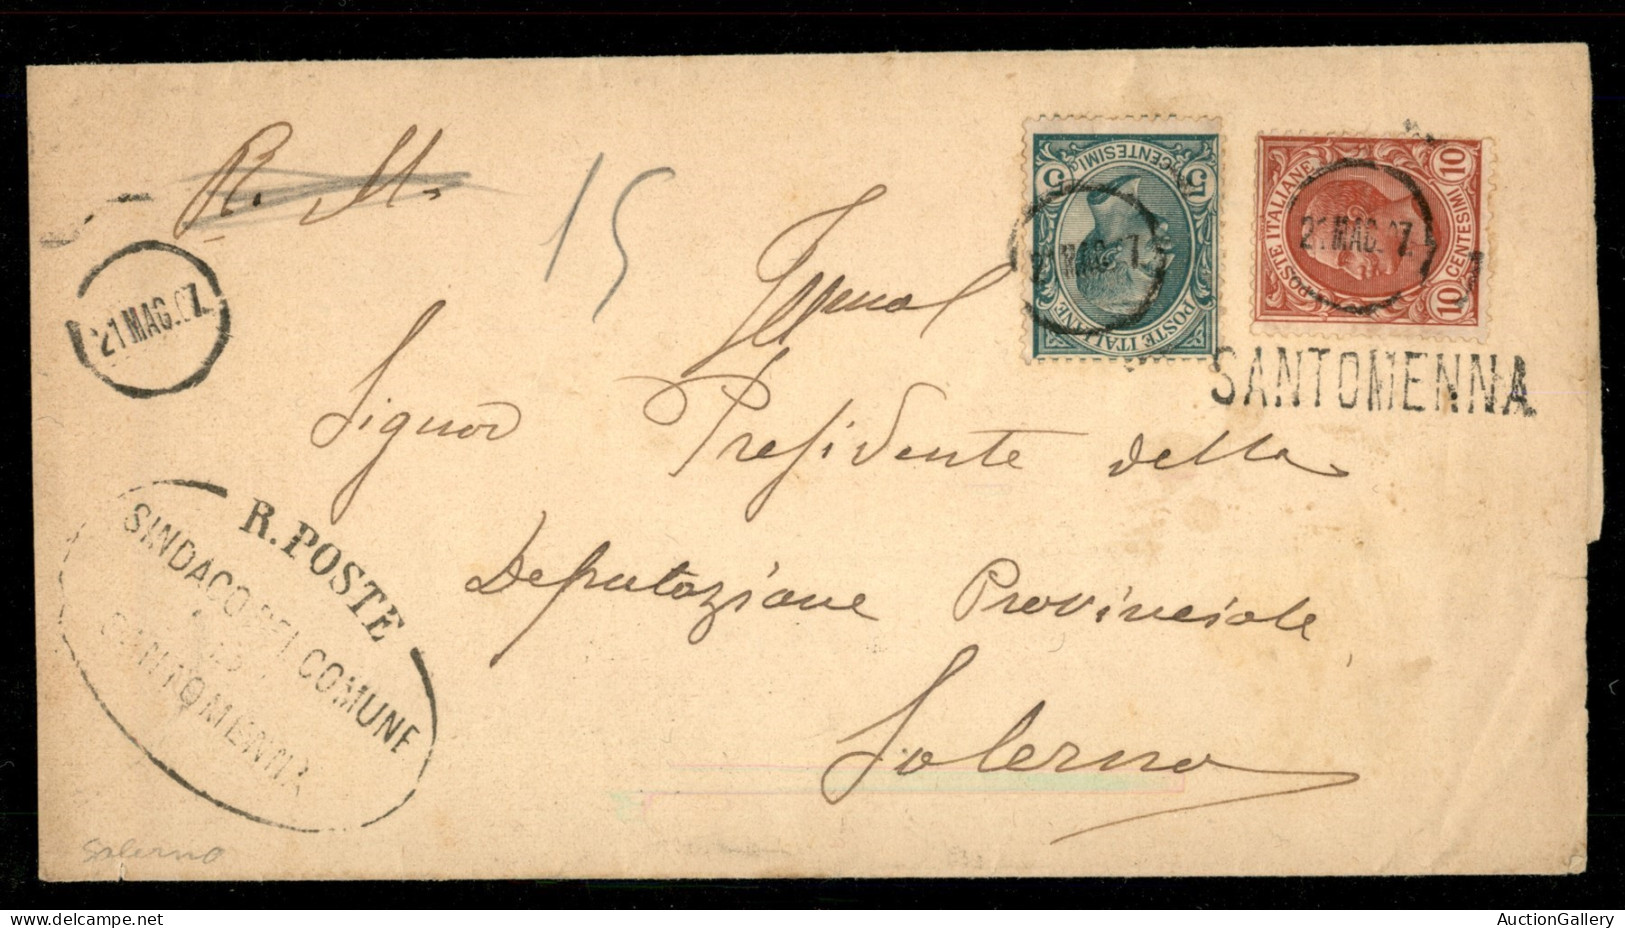 R. M.
15
21 MAG. 07.
5 CENTESIMI 5
POSTE ITALIANE
21 MAG. 07.
POSTE ITALIANE
10 CENTESIMI 10
21 MAG. 07.
SANTOMENNA
Signor Presidente della
Deputazione Provinciale
Salerno
R. POSTE
SINDACO DEL COMUNE
DI
SANTOMENNA
Salerno
AuctionGallery